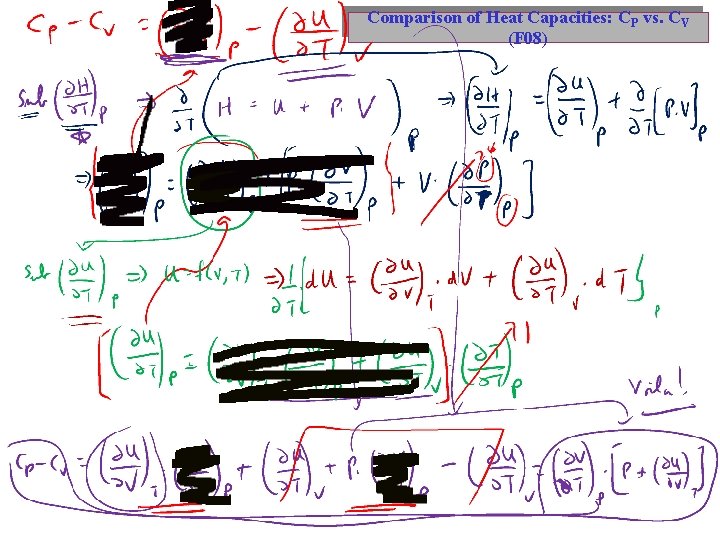 Comparison of Heat Capacities: CP vs. CV
(F08)
Cp - Cv = ( )p - (∂U/∂T)v
Sub (∂H/∂T)p ⇒ ∂/∂T (H = U + P·V)p ⇒ (∂H/∂T)p = (∂U/∂T)p + ∂/∂T [P·V]p
⇒ { ( )p = (∂V/∂T)p } + V·(∂P/∂T)p ]
Sub (∂U/∂T)p ⇒ U = f(V,T) ⇒ 1/∂T { dU = (∂U/∂V)T · dV + (∂U/∂T)v · dT }p
[ (∂U/∂T)p = ( )v ] (∂T/∂T)p 1
Voila!
Cp - Cv = (∂U/∂V)T ( )p + (∂U/∂T)v + P·( )p - (∂U/∂T)v = (∂V/∂T)p · [P + (∂U/∂V)T]